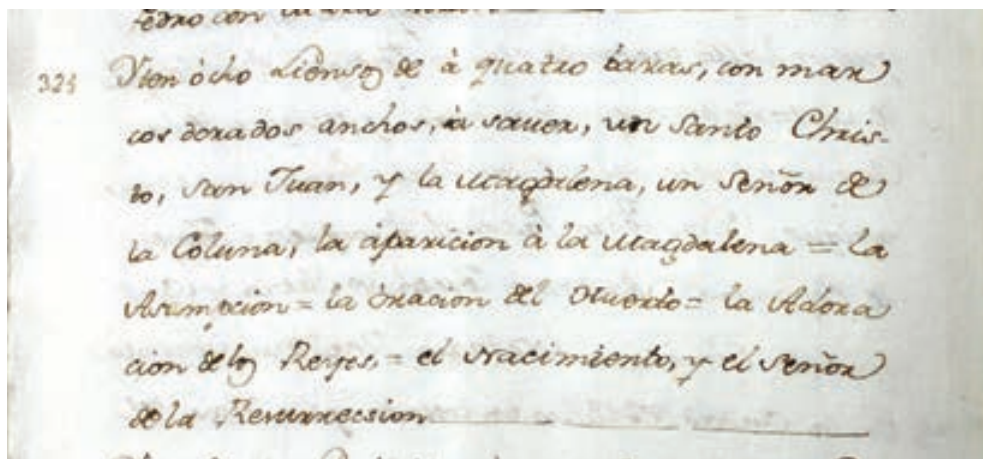 Pedro con
325 Yten ócho Liensos de à quatro baras, con mar
cos dorados anchos, à sauer, un Santo Chris-
to, San Juan, y la Magdalena, un Señor de
la Coluna, la àparicion à la Magdalena = La
Asumpcion = la òracion del Huerto = la Adora
cion de los Reyes, = el Nacimiento, y el Señor
de la Resurrecsion